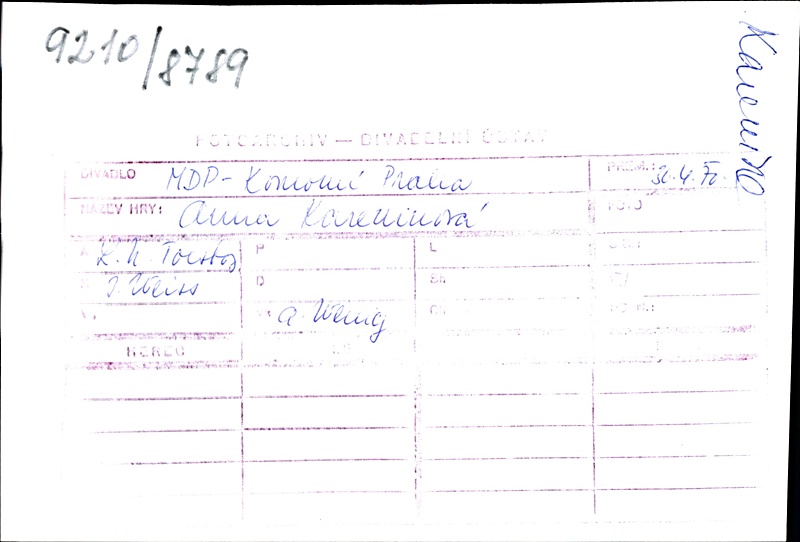 9210/8789
Karenino
FOTOARCHIV — DIVADELNÍ ÚSTAV
DIVADLO MDP - Komorní Praha PREM.:
NÁZEV HRY: Anna Kareninová FOTO
A L. N. Tolstoj P L
J. Weiss D
V a. Wenig
HEREC